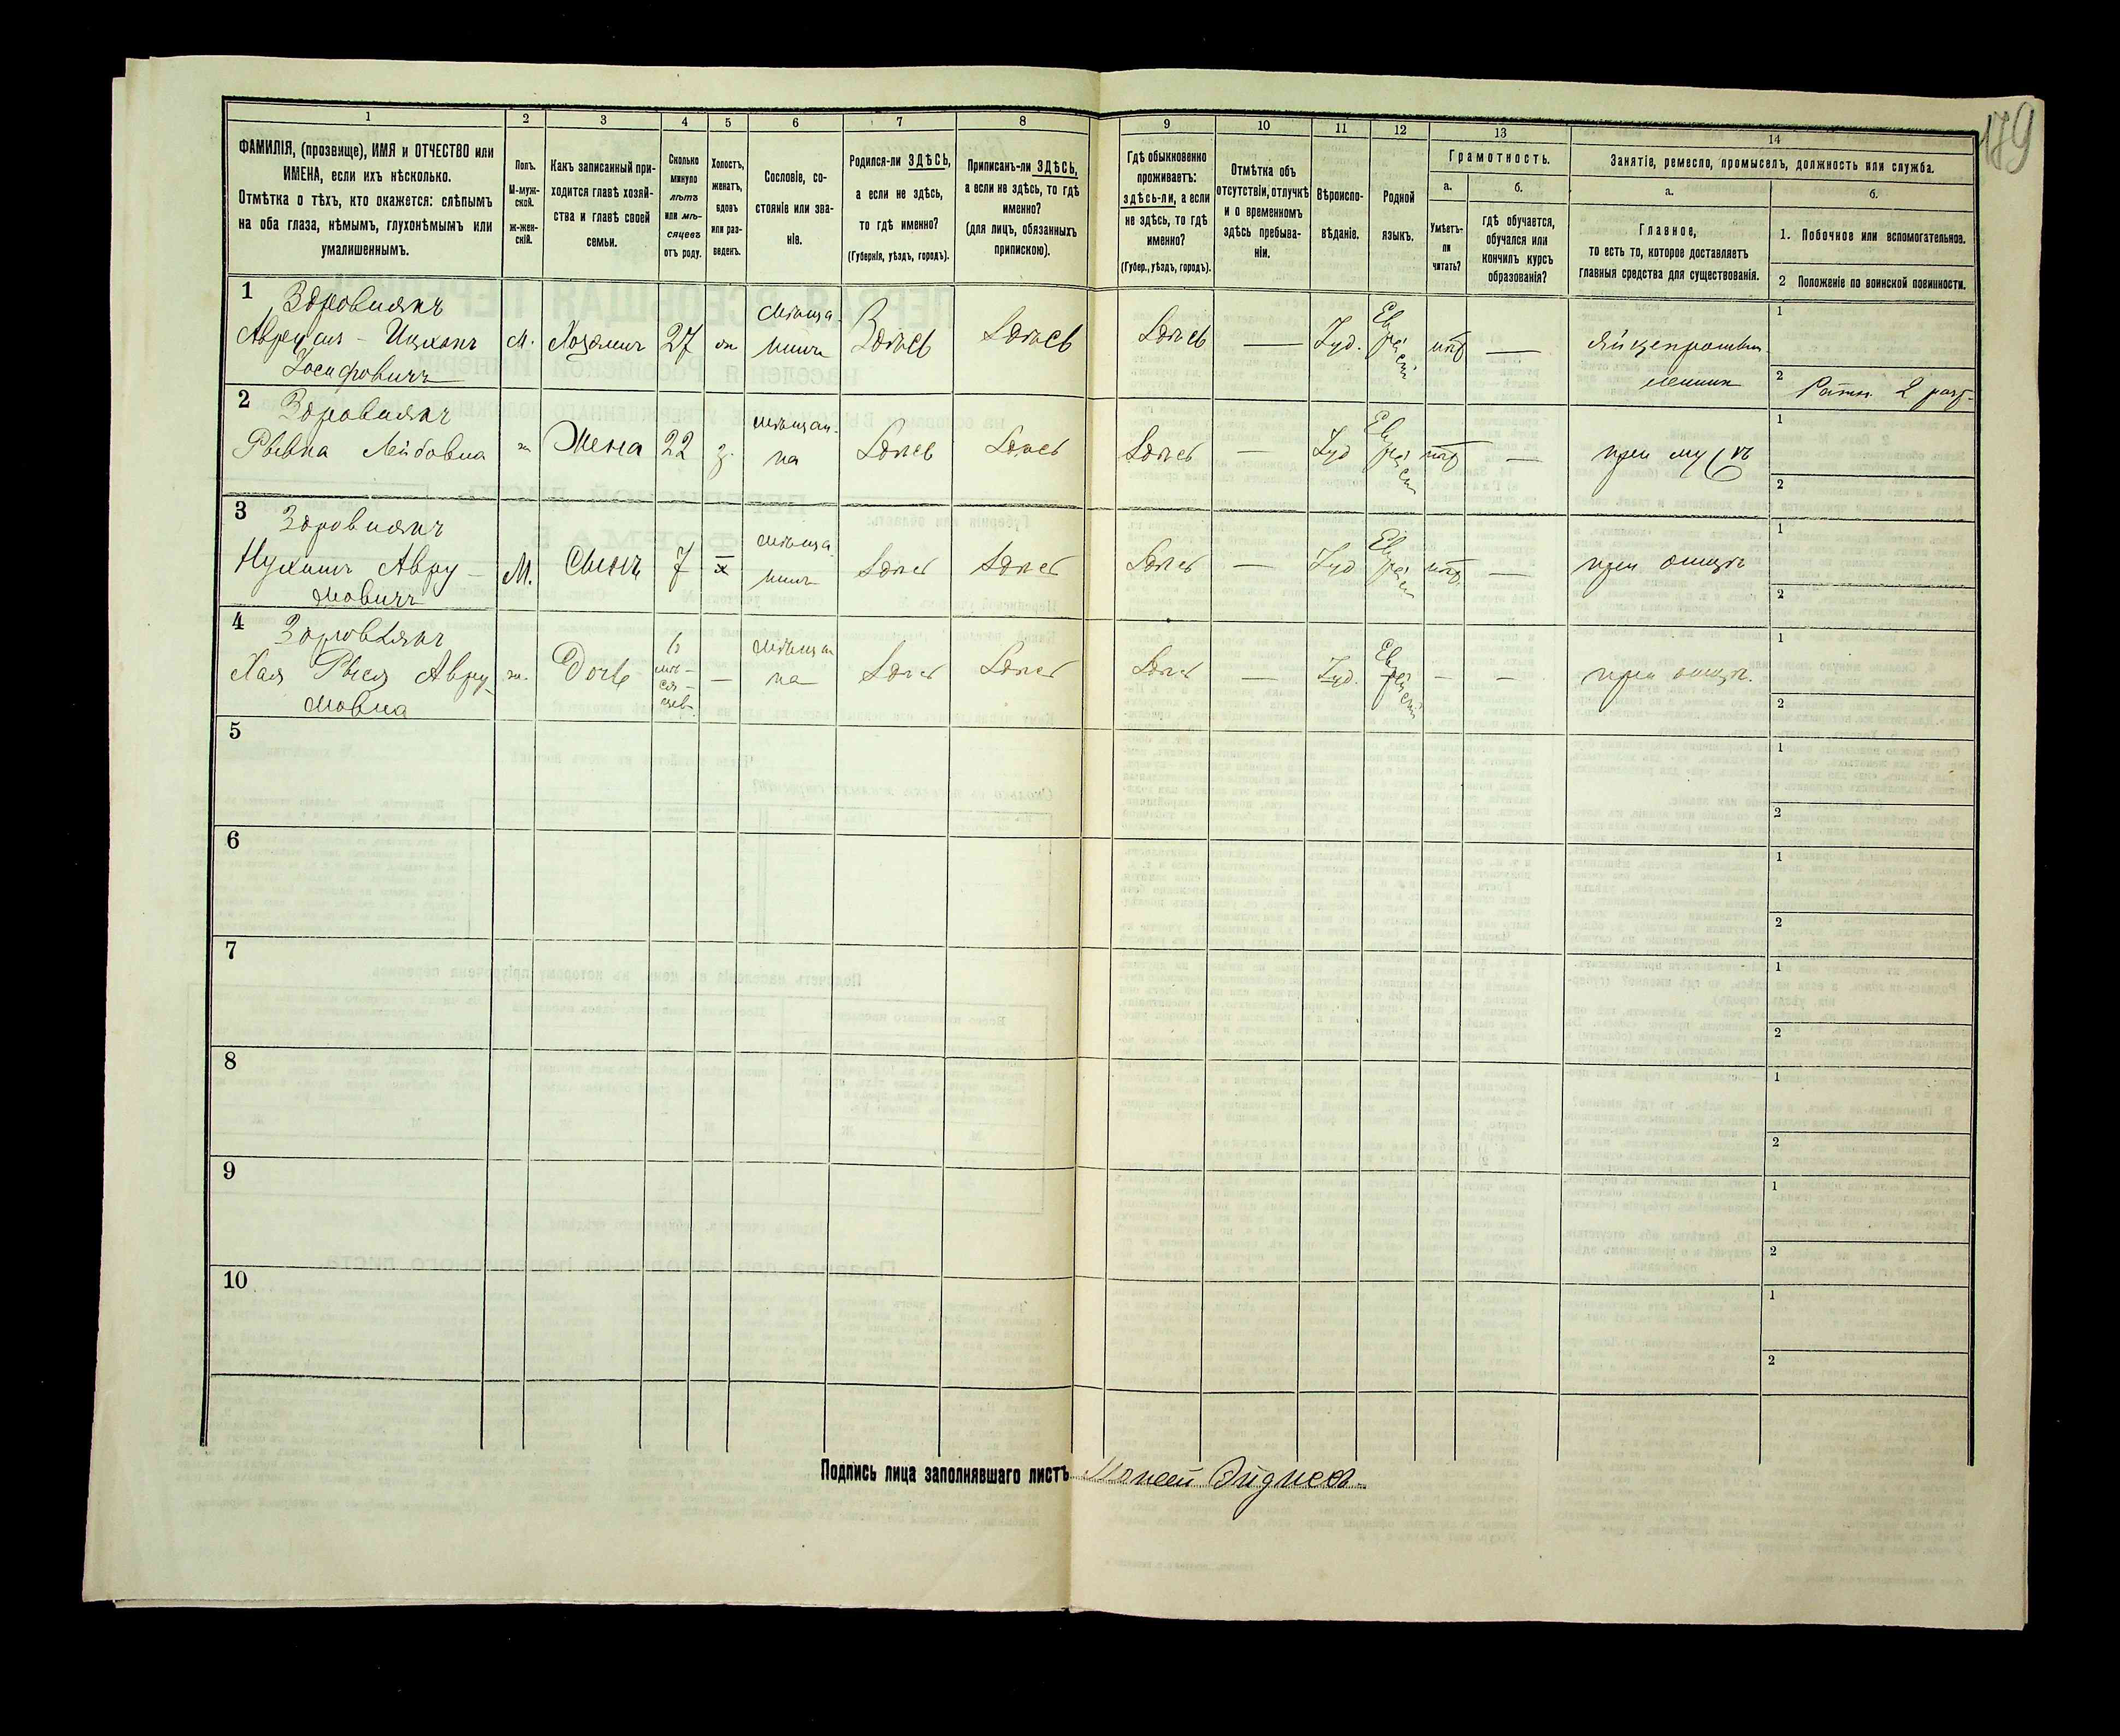 179
1
2
3
4
5
6
7
8
9
10
11
12
13
14
ФАМИЛІЯ, (прозвище), ИМЯ и ОТЧЕСТВО или
ИМЕНА, если ихъ нѣсколько.
Отмѣтка о тѣхъ, кто окажется: слѣпымъ
на оба глаза, нѣмымъ, глухонѣмымъ или
умалишеннымъ.
Полъ.
М-муж-
ской.
ж-жен-
скій.
Какъ записанный при-
ходится главѣ хозяй-
ства и главѣ своей
семьи.
Сколько
минуло
лѣтъ
или мѣ-
сяцевъ
отъ роду.
Холостъ,
женатъ,
вдовъ
или раз-
веденъ.
Сословіе, со-
стояніе или зва-
ніе.
Родился-ли ЗДѢСЬ,
а если не здѣсь,
то гдѣ именно?
(Губернія, уѣздъ, городъ).
Приписанъ-ли ЗДѢСЬ,
а если не здѣсь, то гдѣ
именно?
(для лицъ, обязанныхъ
припискою).
Гдѣ обыкновенно
проживаетъ:
здѣсь-ли, а если
не здѣсь, то гдѣ
именно?
(Губер., уѣздъ, городъ).
Отмѣтка объ
отсутствіи, отлучкѣ
и о временномъ
здѣсь пребыва-
ніи.
Вѣроиспо-
вѣданіе.
Родной
языкъ.
Грамотность.
а.
Умѣетъ-
ли
читать?
б.
гдѣ обучается,
обучался или
кончилъ курсъ
образованія?
Занятіе, ремесло, промыселъ, должность или служба.
а.
Главное,
то есть то, которое доставляетъ
главныя средства для существованія.
б.
1. Побочное или вспомогательное.
2 Положеніе по воинской повинности.
1
Здровнякъ
Аврумъ - Ицхокъ
Іосифовичъ
М.
Хозяинъ
27
ж
мѣща-
нинъ
Здѣсь
Здѣсь
Здѣсь
—
Іуд.
Еврейскій
нѣтъ
—
Яйцепромыш-
ленникъ
1
2 Ратн. 2 разр.
2
Здровнякъ
Ривка Лейбовна
ж
Жена
22
з.
мѣщан-
ка
Здѣсь
Здѣсь
Здѣсь
—
Іуд
Еврейскій
нѣтъ
—
при мужѣ
1
2
3
Здровнякъ
Нухимъ Авру-
мовичъ
М.
Сынъ
7
х
мѣща-
нинъ
Здѣсь
Здѣсь
Здѣсь
—
Іуд
Еврейскій
нѣтъ
—
при отцѣ
1
2
4
Здровнякъ
Хая Рыся Авру-
мовна
ж.
Дочь
6
мѣ-
ся-
цевъ
—
мѣщан
ка
Здѣсь
Здѣсь
Здѣсь
—
Іуд.
Еврейскій
—
—
при отцѣ.
1
2
5
1
2
6
1
2
7
1
2
8
1
2
9
1
2
10
1
2
Подпись лица заполнявшаго листъ